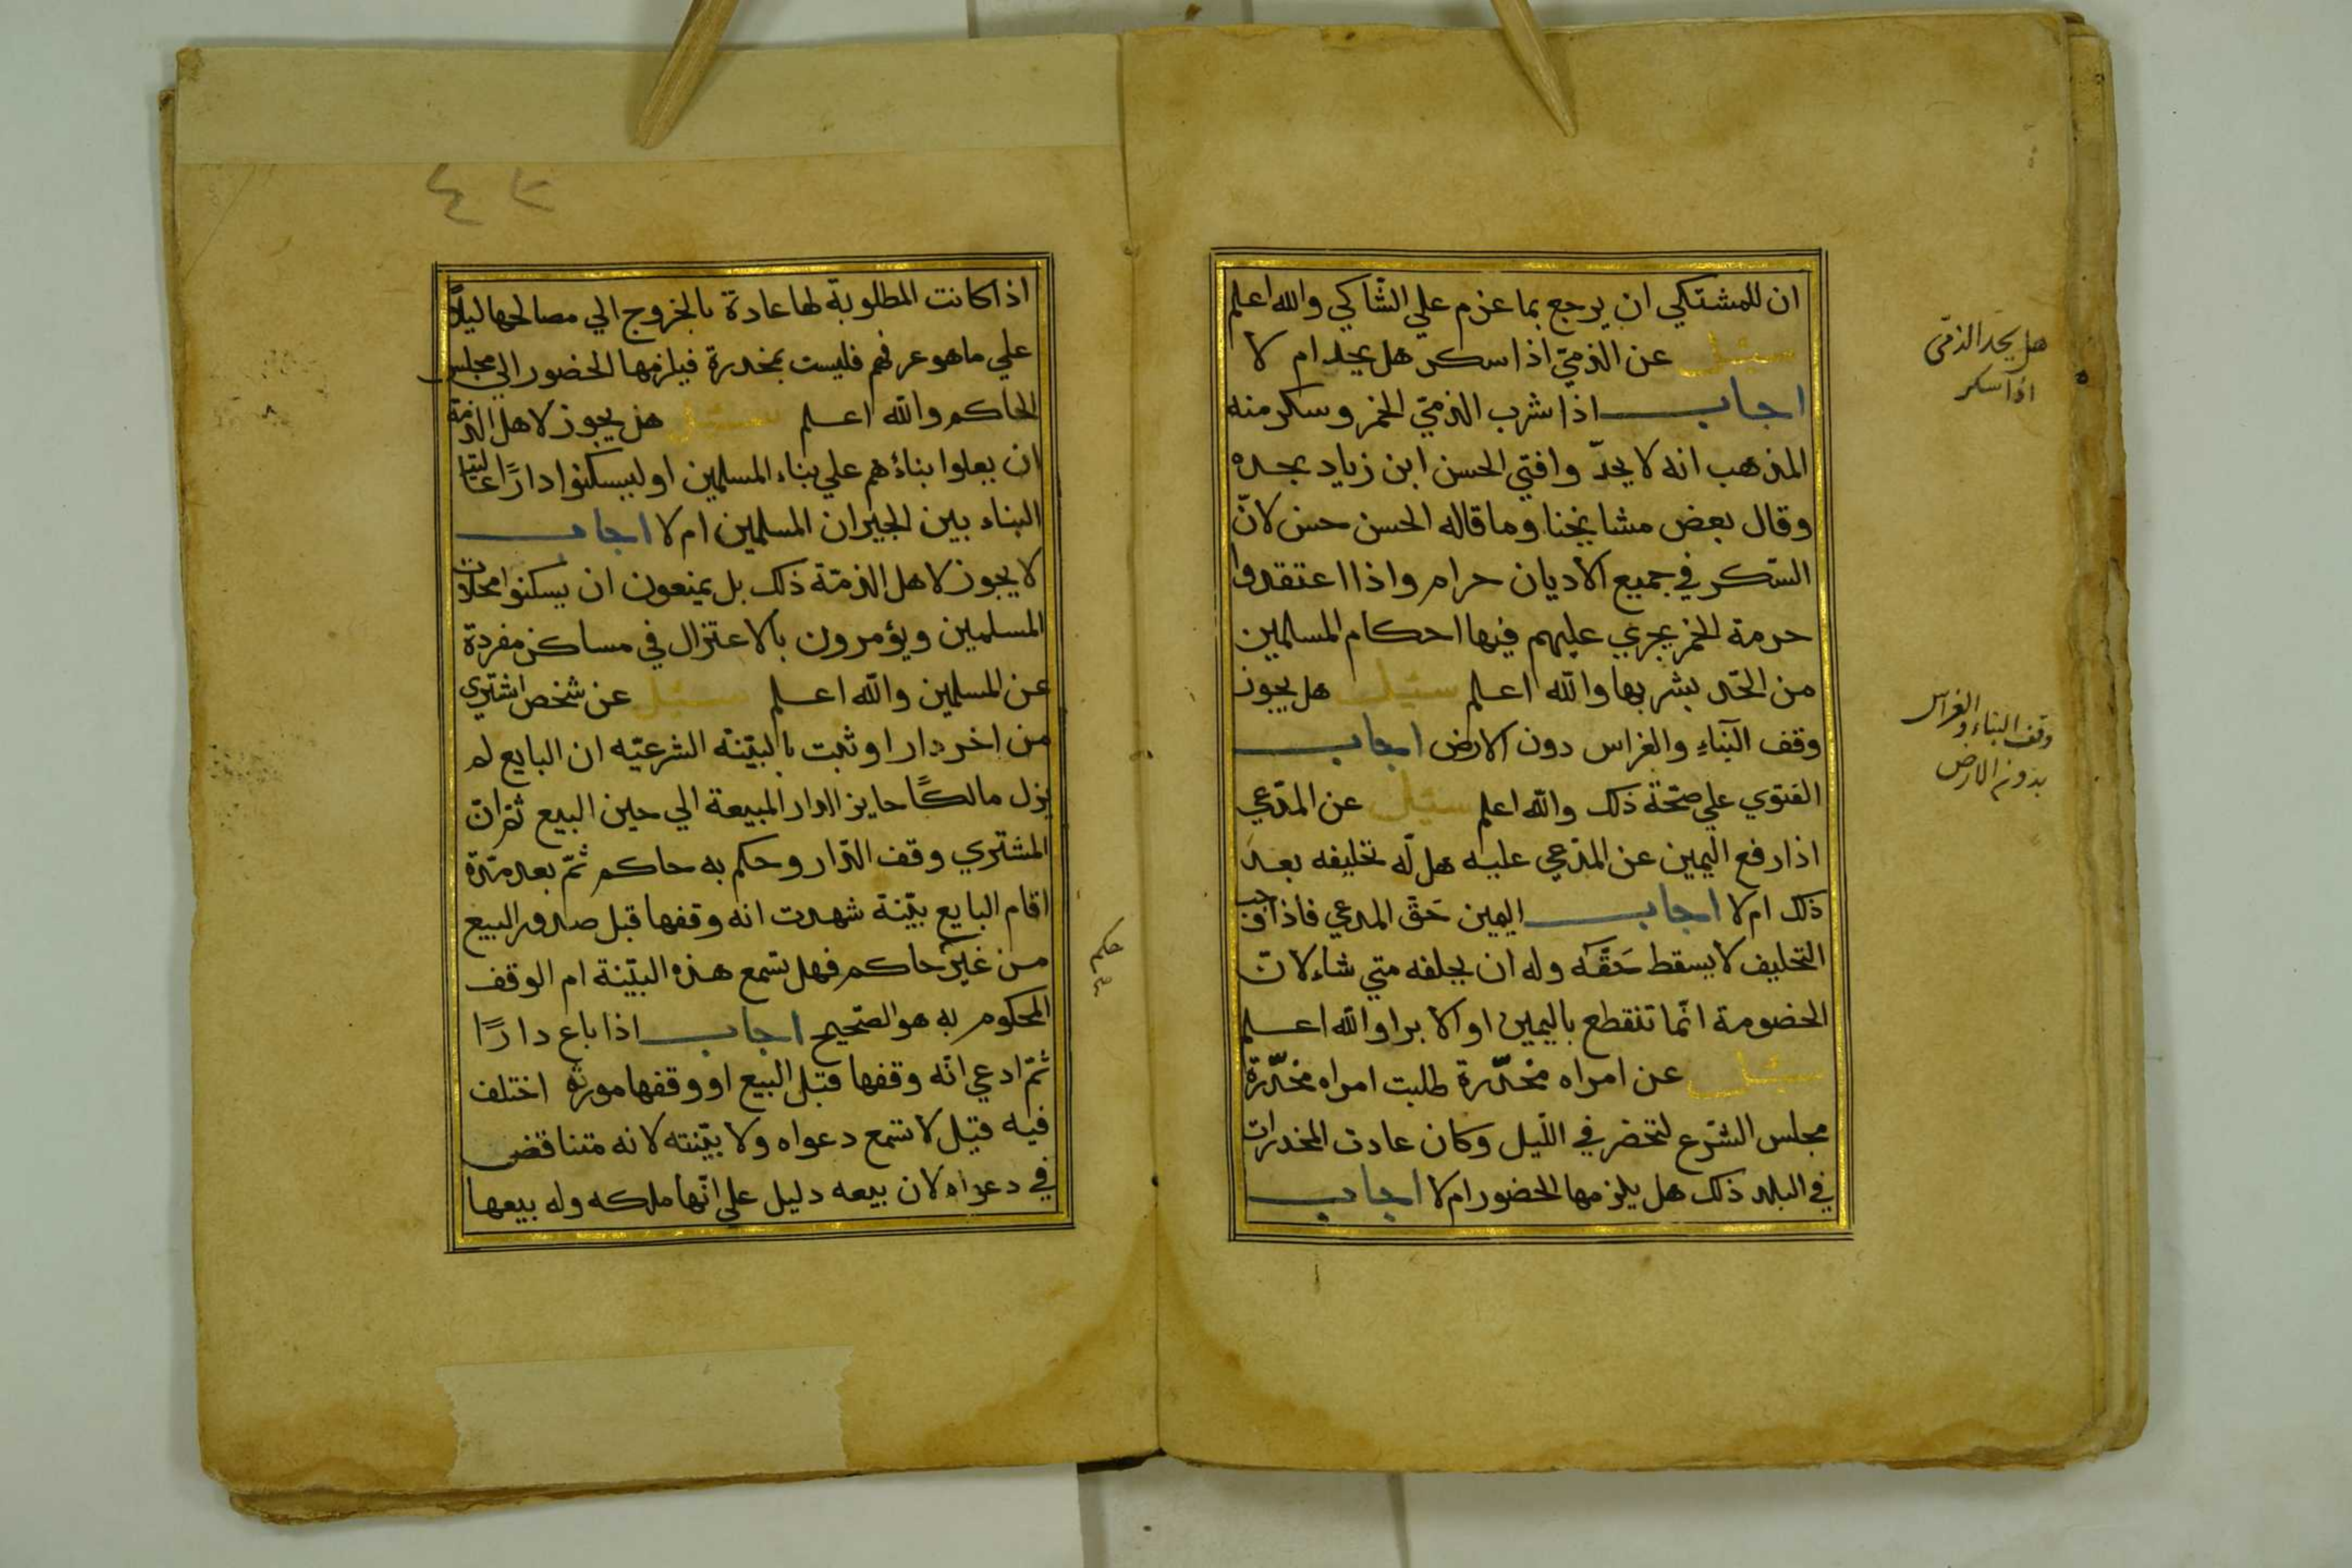 ان للمشتكي ان يرجع بما عزم علي الشّاكي والله اعلم
سئل عن الذميّ اذا سكر هل يحد ام لا
اجاب اذا شرب الذميّ الخمر وسكر منه
المذهب انه لا يحدّ وافتي الحسن ابن زياد بحده
وقال بعض مشايخنا وما قاله الحسن حسن لانّ
السّكر في جميع الاديان حرام واذا اعتقدوا
حرمة الخمر يجري عليهم فيها احكام المسلمين
من الحّد بشربها والله اعلم سئيل هل يجوز
وقف البّناءِ والغراس دون الارض اجاب
الفتوي علي صحّة ذلك والله اعلم سئيل عن المدّعي
اذا رفع اليمين عن المدّعي عليه هل له تحليفه بعد
ذلك ام لا اجاب اليمين حَقّ المدعي فاذا
التحليف لا يسقط حَقّه وله ان يحلفه متي شاء لانّ
الخصومة انّما تنقطع باليمين او الابرا والله اعلم
سئل عن امراه مخدّرة طلبت امراه مخدّرة
مجلس الشّرع لتحضر في اللّيل وكان عادت المخدرات
في البلد ذلك هل يلزمها الحضور ام لا اجاب
هل يحدّ الذمّى
اذا سكر
وقف البناء والغراس
بدون الارض
٤٢
اذا كانت المطلوبة لها عادة بالخروج الي مصالحها ليلاً
علي ما هو عرفهم فليست بمخدرة فيلزمها الحضور الي مجلس
الحاكم والله اعلم سئيل هل يجوز لاهل الذمة
ان يعلوا بناءهم علي بناء المسلمين او ليسكنوا دارًا
البناء بين الجيران المسلمين ام لا اجاب
لا يجوز لاهل الذمّة ذلك بل يمنعون ان يسكنوا محلات
المسلمين ويؤمرون بالاعتزال في مساكن مفردة
عن المسلمين والله اعلم سئيل عن شخص اشتري
من اخر دارا وثبت بالبيّنة الشرعيّه ان البايع لم
يزل مالكًا حايزا الدار المبيعة الي حين البيع ثمّ انّ
المشتري وقف الدّار وحكم به حاكم ثمّ بعد مدّة
اقام البايع بيّنة شهدت انه وقفها قبل صدور البيع
من غير حاكم فهل تسمع هذه البيّنة ام الوقف
المحكوم به هو الصّحيح اجاب اذا باع دارًا
ثمّ ادعي انّه وقفها قبل البيع او وقفها مورثه اختلف
فيه قيل لا تسمع دعواه ولا بيّنته لانه متناقض
في دعواه لان بيعه دليل علي انّها ملكه وله بيعها
حكم